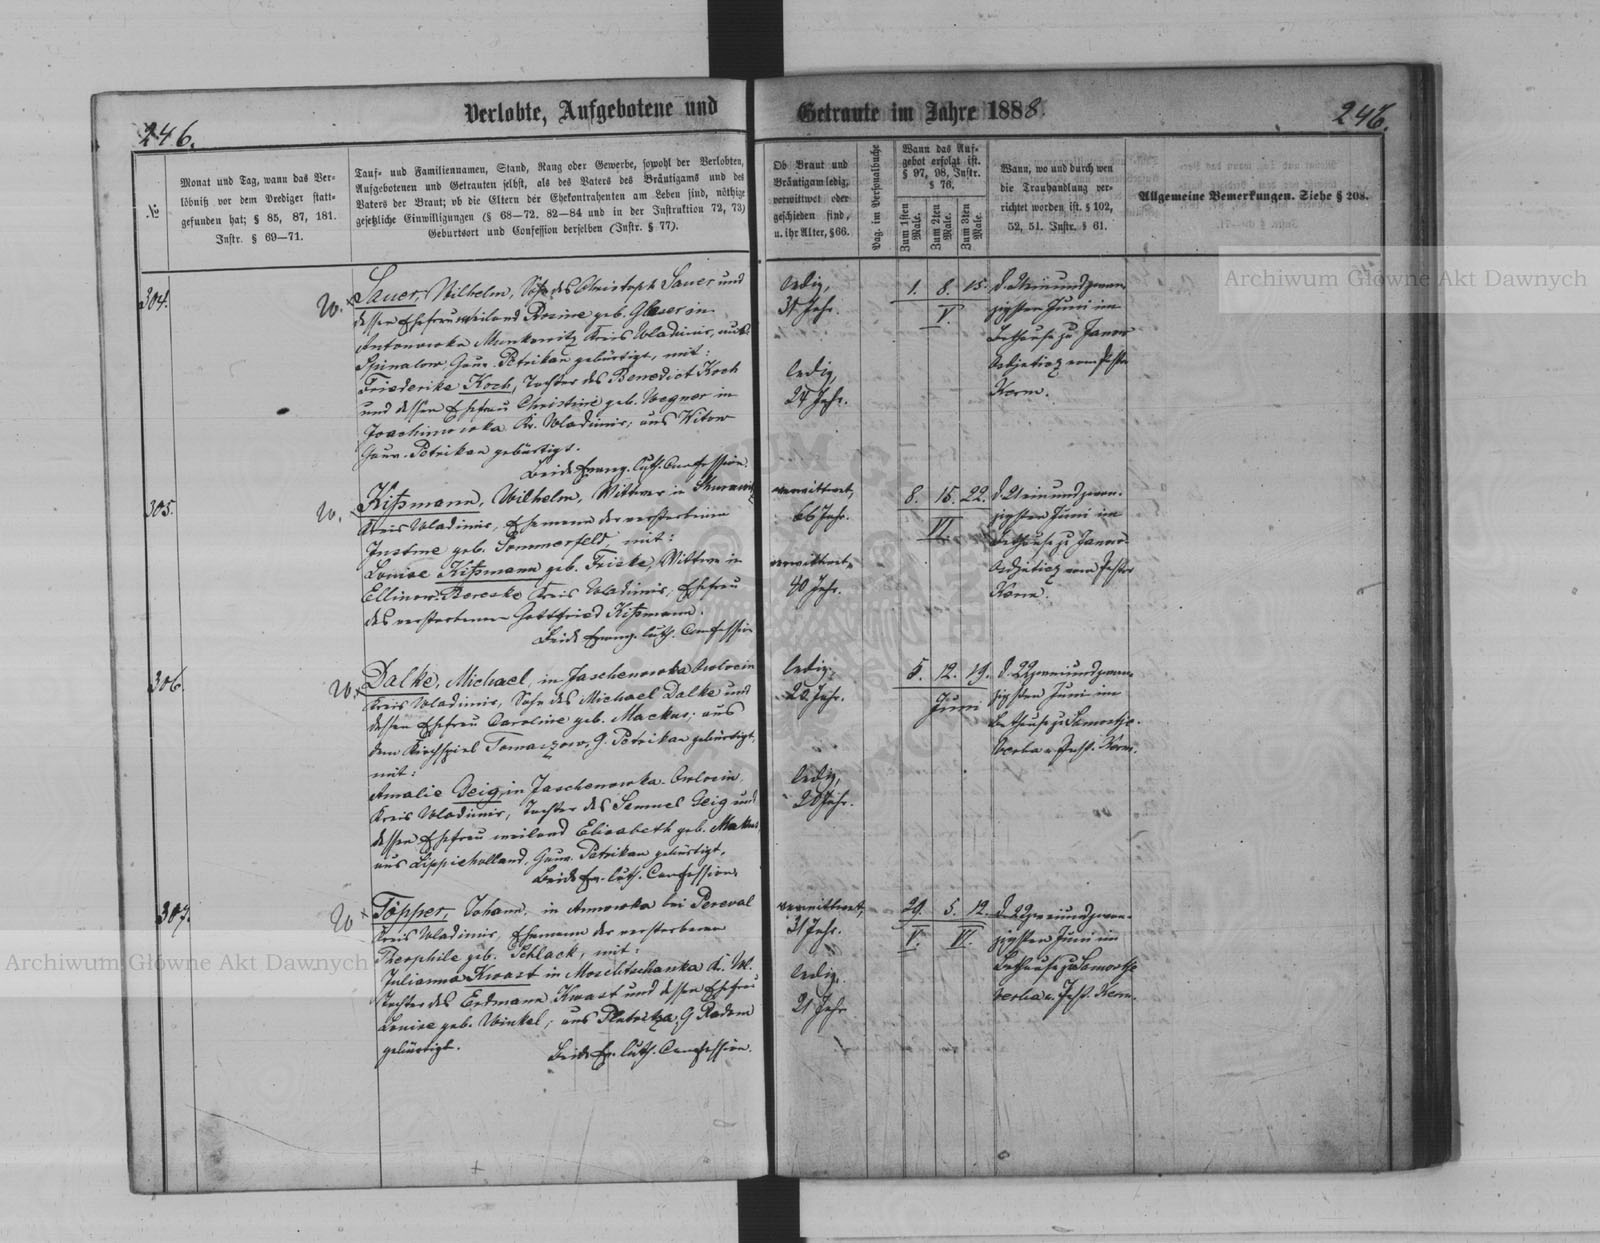 Verlobte, Aufgebotene und
Getraute im Jahre 1888.
246.
246.
№
Monat und Tag, wann das Ver-
löbniß vor dem Prediger statt-
gefunden hat; § 85, 87, 181.
Instr. § 69—71.
Tauf- und Familiennamen, Stand, Rang oder Gewerbe, sowohl der Verlobten,
Aufgebotenen und Getrauten selbst, als des Vaters des Bräutigams und des
Vaters der Braut; ob die Eltern der Ehekontrahenten am Leben sind, nöthige
gesetzliche Einwilligungen (§ 68—72. 82—84 und in der Instruktion 72, 73)
Geburtsort und Confession derselben (Instr. § 77).
Ob Braut und
Bräutigam ledig,
verwittwet oder
geschieden sind,
u. ihr Alter, § 66.
Pag. im Personalbuche
Wann das Auf-
gebot erfolgt ist.
§ 97, 98, Instr.
§ 76.
Zum 1sten Male.
Zum 2ten Male.
Zum 3ten Male.
Wann, wo und durch wen
die Trauhandlung ver-
richtet worden ist. § 102,
52, 51. Instr. § 61.
Allgemeine Bemerkungen. Siehe § 208.
304.
W.
Sauer, Wilhelm, Sohn des Christoph Sauer und
dessen Ehefrau weiland Rosine geb. Glaeser in
Antonowka Kreis Wladimir, aus
Gouv. Petrikau gebürtigt, mit:
Friederike Koch, Tochter des Benedict Koch
und dessen Ehefrau Christine geb. Wegner in
Joachimowka Kr. Wladimir; aus Kitow
Gouv. Petrikau gebürtigt.
Beide Evang. luth. Confession.
ledig,
31 Jahr.
ledig,
24 Jahr.
1. 8. 15.
V.
d. 21 einundzwan-
zigsten Juni im
Bethause zu Janow
vom Pastor
Kerm.
305.
W.
Kißmann, Wilhelm, Wittwer in
Kreis Wladimir, Ehemann der verstorbenen
Justine geb. Sommerfeld, mit:
Louise Kißmann geb. Friske, Wittwe in
Ellinow-Bereske Kreis Wladimir, Ehefrau
des verstorbenen Gottfried Kißmann.
Beide Evang. luth. Confession
verwittwet,
66 Jahr.
verwittwet,
40 Jahr.
8. 15. 22.
VI.
d. 21 einundzwan-
zigsten Juni im
Bethause zu Janow
vom Pastor
Kerm.
306.
W.
Dalke, Michael, in Jaschenowka
Kreis Wladimir, Sohn des Michael Dalke und
dessen Ehefrau Caroline geb. Mackus; aus
dem Kirchspiel Tomaszow, G. Petrikau gebürtigt,
mit:
Amalie Geig, in Jaschenowka
Kreis Wladimir, Tochter des Samuel Geig und
dessen Ehefrau weiland Elisabeth geb.
aus Gouv. Petrikau gebürtigt,
Beide Ev. luth. Confession.
ledig,
22 Jahr.
ledig,
20 Jahr.
5. 12. 19.
Juni
d. 22 zweiundzwan-
zigsten Juni im
Bethause zu Samostje-
werba v. Past. Kerm.
307.
W
Töpper, Johann, in Annowka bei Pereval
Kreis Wladimir, Ehemann der verstorbenen
Theophile geb. Schlack, mit:
Julianna Kwast in Moschtschanka K. W.
Tochter des Erdmann Kwast und dessen Ehefrau
Louise geb. Winkel; aus G. Radom
gebürtigt.
Beide Ev. luth. Confession.
verwittwet,
31 Jahr.
ledig,
21 Jahr
29. 5. 12.
V. VI.
d. 22 zweiundzwan-
zigsten Juni im
Bethause zu Samostje
werba v. Past. Kerm.
Archiwum Główne Akt Dawnych
Archiwum Główne Akt Dawnych